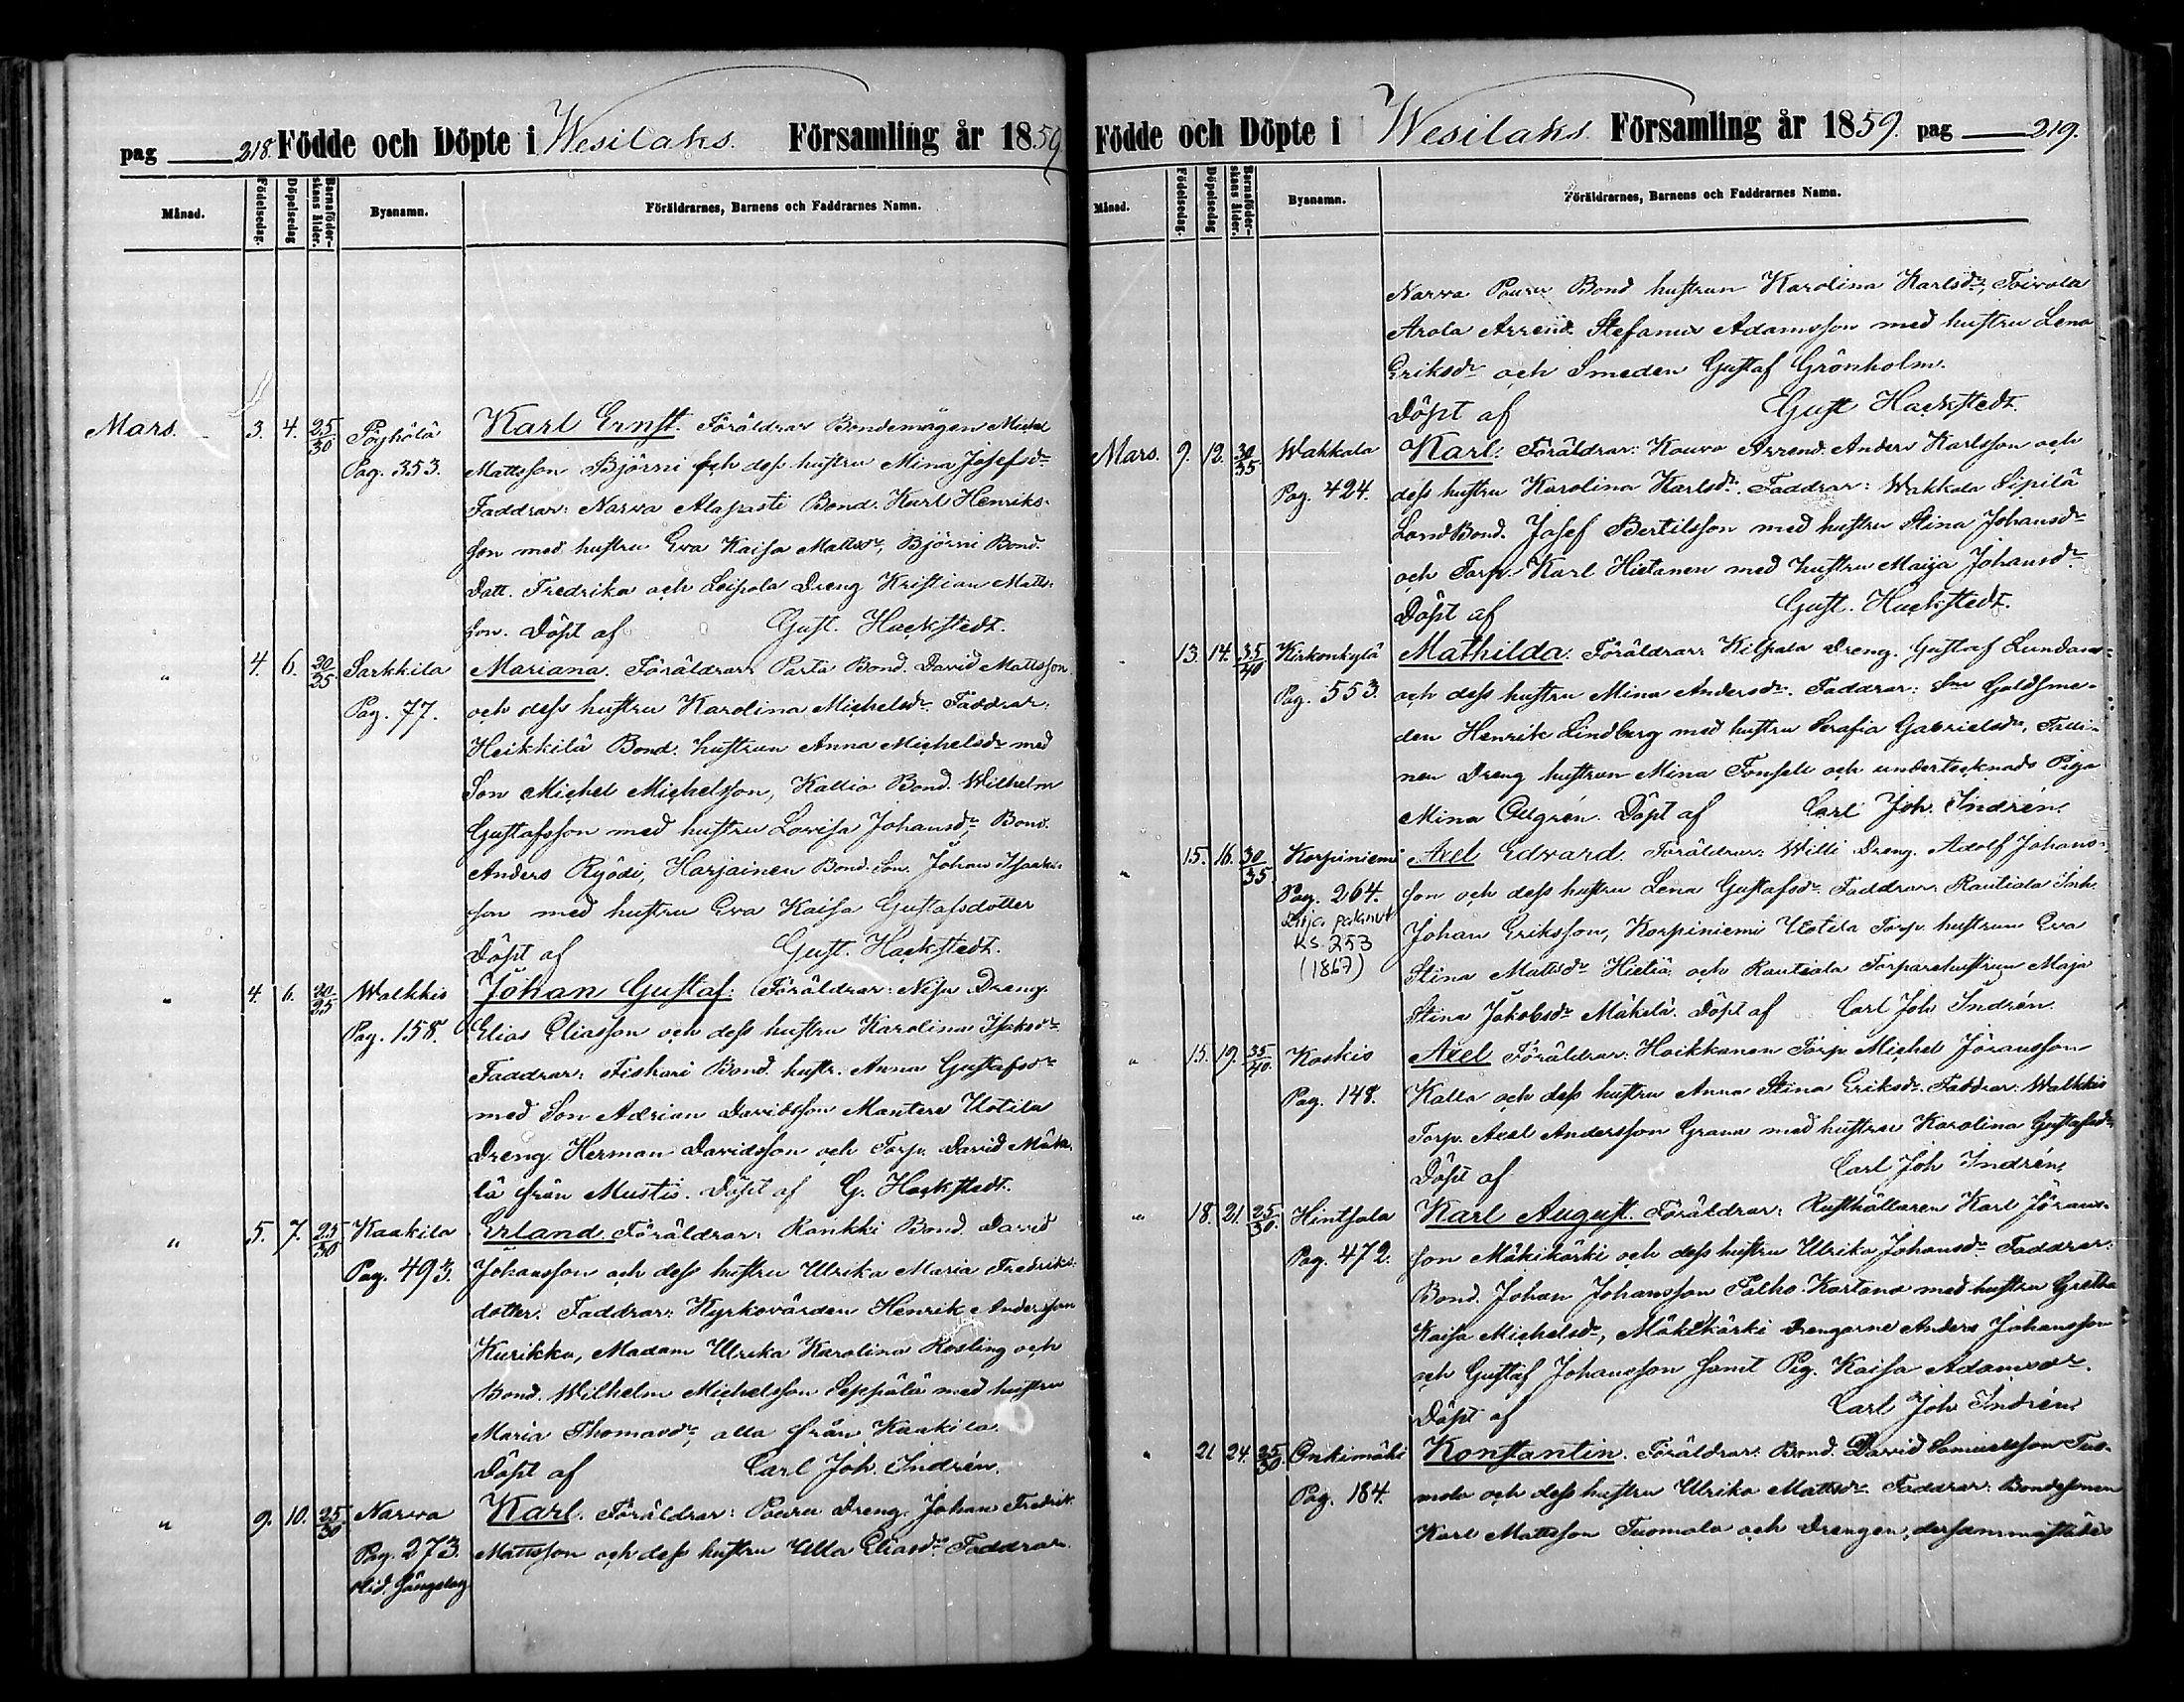 pag 218. Födde och Döpte i Wesilaks. Församling år 1859
Månad.
Födelsedag.
Döpelsedag
Barnaföder-
skans ålder.
Byanamn.
Föräldrarnes, Barnens och Faddrarnes Namn.
Mars. 3. 4. 25/30 Pöyhölä Karl Ernst. Föräldrar Bondemågen Michel
Pag. 353. Mattsson Björni och dess hustru Mina Josefsdr
Faddrar: Narva Alapasti Bond. Karl Henriks-
son med hustru Eva Kaisa Mattsdr, Björni Bond.
Datt. Fredrika och Seipola Dreng Kristian Matts-
son. Döpt af Gust. Hackstedt.
" 4. 6. 30/35 Sarkkila Mariana. Föräldrar: Parta Bond. David Mattsson
Pag. 77. och dess hustru Karolina Michelsdr. Faddrar:
Heikkilä Bond. hustrun Anna Michelsdr med
Son Michel Michelsson, Kallio Bond. Wilhelm
Gustafsson med hustru Lovisa Johansdr Bond.
Anders Ryödi, Harjainen Bond. Son. Johan Isaaks-
son med hustru Eva Kaisa Gustafsdotter
Döpt af Gust. Hackstedt.
" 4. 6. 20/25 Walkkis Johan Gustaf: Föräldrar: Nisu Dreng.
Pag. 158. Elias Eliasson och dess hustru Karolina Isaksdr
Faddrar: Fiskari Bond. hustr. Anna Gustafsdr
med Son Adrian Davidsson Mantere Uotila
Dreng Herman Davidsson och Torp. David Mäke-
lä från Mustis. Döpt af G. Hackstedt.
" 5. 7. 25/30 Kaakila Erland. Föräldrar: Rankki Bond. David
Pag. 493. Johansson och dess hustru Ulrika Maria Fredriks-
dotter. Faddrar: Kyrkovärden Henrik Andersson
Kurikka, Madam Ulrika Karolina Rosling och
Bond. Wilhelm Michelsson Seppälä med hustru
Maria Thomasdr, alla från Kaakila.
Döpt af Carl Joh. Indrén.
" 9. 10. 25/30 Narva Karl. Föräldrar: Pouru Dreng. Johan Fredrik
Pag. 273. Mattsson och dess hustru Ulla Eliasdr. Faddrar.
Födde och Döpte i Wesilaks Församling år 1859. pag 219.
Månad.
Födelsedag.
Döpelsedag
Barnaföder-
skans ålder.
Byanamn.
Föräldrarnes, Barnens och Faddrarnes Namn.
Narva Pouru Bond hustrun Karolina Karlsdr, Toivola
Arola Arrend. Stefanus Adamsson med hustru Lena
Eriksdr och Smeden Gustaf Grönholm.
Döpt af Gust Hackstedt.
Mars. 9. 12. 30/35 Wakkala Karl: Föräldrar: Kouvo Arrend. Anders Karlsson och
Pag. 424. dess hustru Karolina Karlsdr. Faddrar: Wakkala Sipilä
LandBond. Josef Bertilsson med hustru Stina Johansdr
och Torp. Karl Hietanen med hustru Maija Johansdr
Döpt af Gust. Hackstedt.
13. 14. 35/40 Kirkonkylä Mathilda. Föräldrar: Kilpala Dreng. Gustaf Lundan-
Pag. 553. och dess hustru Mina Andersdr. Faddrar: Goldsme-
den Henrik Lindberg med hustru Serafia Gabrielsdr,
nen Dreng hustrun Mina Fonsell och undertecknads Piga
Mina Ollgrén. Döpt af Carl Joh. Indrén.
" 15. 16. 30/35 Korpiniemi Axel Edward. Föräldrar: Willi Dreng. Adolf Johans-
Pag. 264. son och dess hustru Lena Gustafsdr. Faddrar: Rautiola Inh.
ks. 253 Johan Eriksson, Korpiniemi Uotila Torp. hustrun Eva
(1867) Stina Mattsdr Hietiä och Rautiola Torparehustrun Maja
Stina Jakobsdr Mäkelä. Döpt af Carl Joh Indrén.
" 15. 19. 35/40 Koskis Axel Föräldrar: Hoikkanen Torp. Michel Jöransson
Pag. 148. Kalla och dess hustru Anna Stina Eriksdr. Faddrar: Walkkis
Torp. Axel Andersson Grann med hustru Karolina Gustafsdr
Döpt af Carl Joh Indrén.
" 18. 21. 25/30. Hintsala Karl August. Föräldrar: Rusthållaren Karl Jörans-
Pag. 472. son Mäkikärki och dess hustru Ulrika Johansdr Faddrar:
Bond. Johan Johansson Palho Kartano med hustru Gretha
Kaisa Michelsdr, Mäkikärki drengarne Anders Johansson
och Gustaf Johansson samt Pig. Kaisa Adamsdr.
Döpt af Carl Joh Indrén.
" 21 24. 25/30. Onkimäki Konstantin. Föräldrar: Bond. David Samuelsson Tuo-
Pag. 184. mola och dess hustru Ulrika Mattsdr. Faddrar: Bondesonen
Karl Mattsson Tuomola och Drengen, dersammastädes